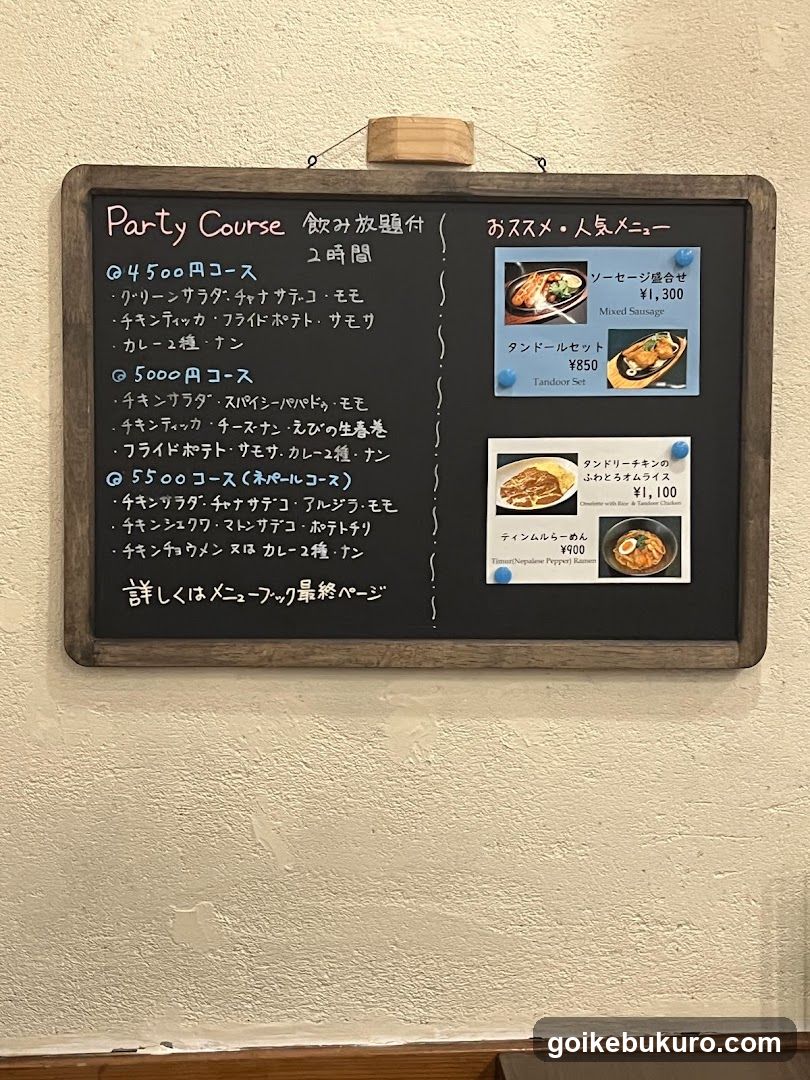 Party Course 飲み放題付
2時間
@4500円コース
・グリーンサラダ・チャナサデコ・モモ
・チキンティッカ・フライドポテト・サモサ
・カレー2種・ナン
@5000円コース
・チキンサラダ・スパイシーパパドゥ・モモ
・チキンティッカ・チーズナン・えびの生春巻
・フライドポテト・サモサ・カレー2種・ナン
@5500コース(ネパールコース)
・チキンサラダ・チャナサデコ・アルジラ・モモ
・チキンシェクワ・マトンサデコ・ポテトチリ
・チキンチョウメン又はカレー2種・ナン
詳しくはメニューブック最終ページ
おススメ・人気メニュー
ソーセージ盛合せ
¥1,300
Mixed Sausage
タンドールセット
¥850
Tandoor Set
タンドリーチキンの
ふわとろオムライス
¥1,100
Omelette with Rice & Tandoor Chicken
ティンムルらーめん
¥900
Timur(Nepalese Pepper) Ramen
goikebukuro.com